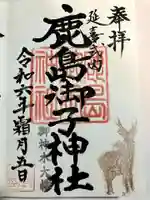 奉拝
延喜式内
鹿島御子神社
令和六年霜月五日